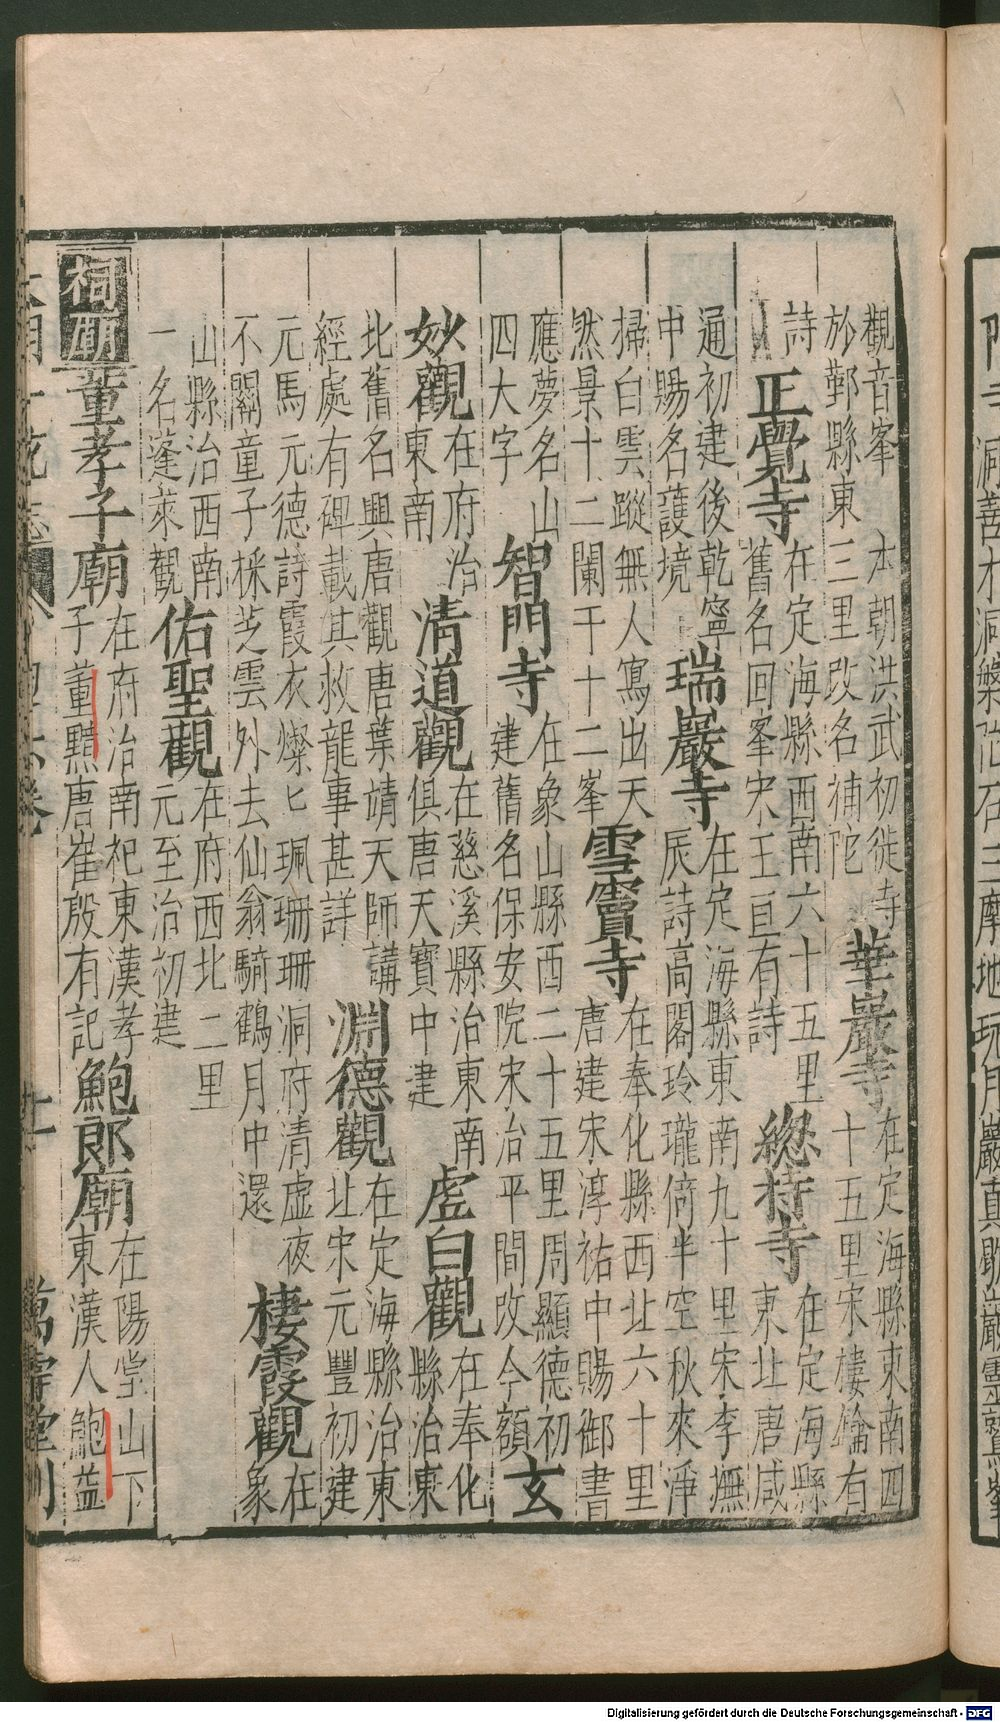 觀音峯　本朝洪武初徙寺於鄞縣東三里改名補陀 華嚴寺 在定海縣東南四十五里宋樓鑰有
詩 正覺寺 在定海縣西南六十五里舊名回峯宋王亘有詩 總持寺 在定海縣東北唐咸
通初建後乾寧中賜名護境 瑞巖寺 在定海縣東南九十里宋李撫辰詩高閣玲瓏倚半空秋來淨
掃白雲蹤無人寫出天然景十二闌干十二峯 雪竇寺 在奉化縣西北六十里唐建宋淳祐中賜御書
應夢名山四大字 智門寺 在象山縣西二十五里周顯德初建舊名保安院宋治平間改今額 玄
妙觀 在府治東南 清道觀 在慈溪縣治東南俱唐天寶中建 虛白觀 在奉化縣治東
北舊名興唐觀唐葉靖天師講經處有碑載其救龍事甚詳 淵德觀 在定海縣治東北宋元豐初建
元馬元德詩霞衣燦匕珮珊珊洞府清虛夜不關童子採芝雲外去仙翁騎鶴月中還 棲霞觀 在象
山縣治西南一名蓬萊觀 佑聖觀 在府西北二里元至治初建
祠廟 董孝子廟 在府治南祀東漢孝子董黯唐崔殷有記 鮑郎廟 在陽堂山下東漢人鮑蓋
萬壽堂刊
Digitalisierung gefördert durch die Deutsche Forschungsgemeinschaft - DFG